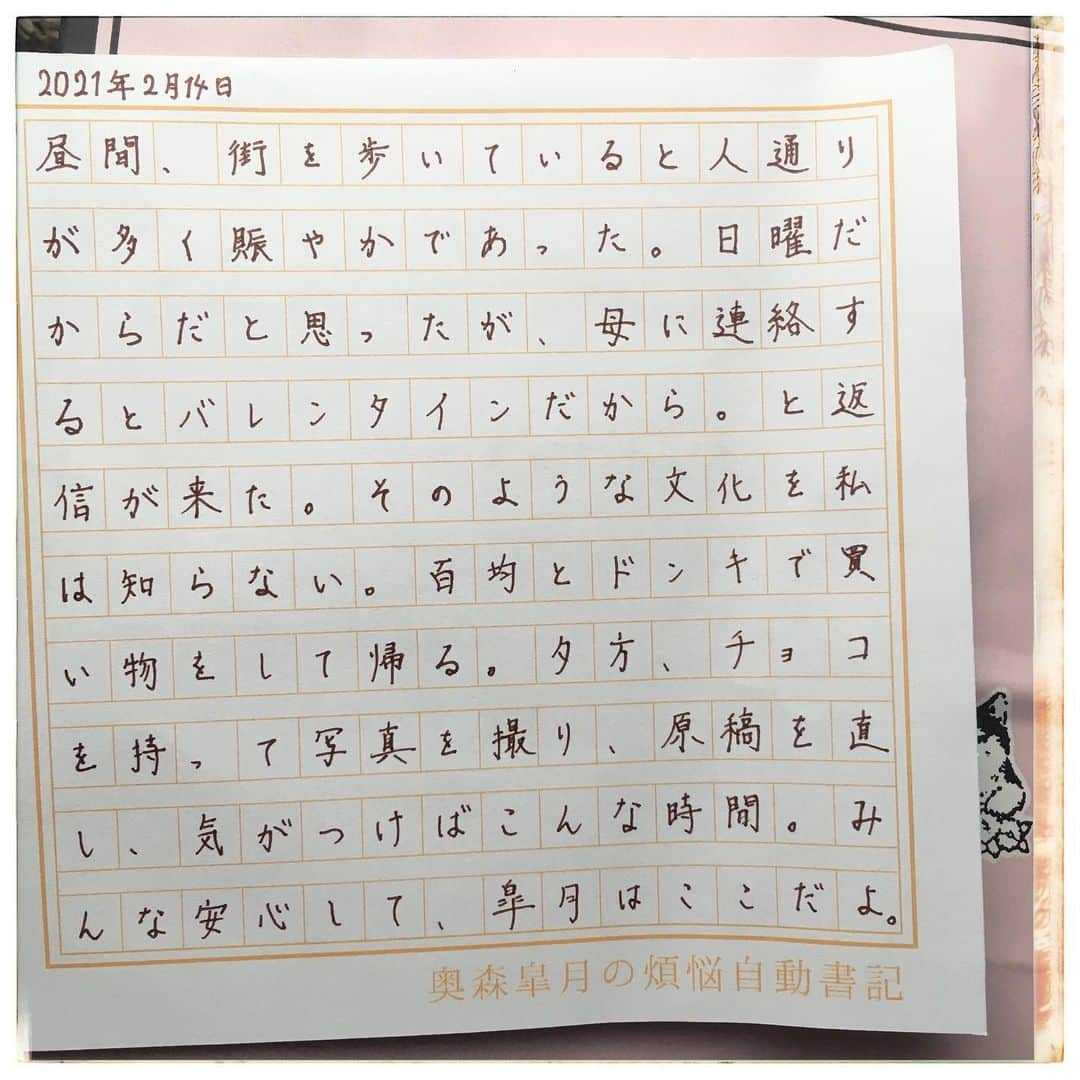 2021年2月14日
昼間、街を歩いていると人通り
が多く賑やかであった。日曜だ
からだと思ったが、母に連絡す
るとバレンタインだから。と返
信が来た。そのような文化を私
は知らない。百均とドンキで買
い物をして帰る。夕方、チョコ
を持って写真を撮り、原稿を直
し、気がつけばこんな時間。み
んな安心して、皐月はここだよ。
奥森皐月の煩悩自動書記